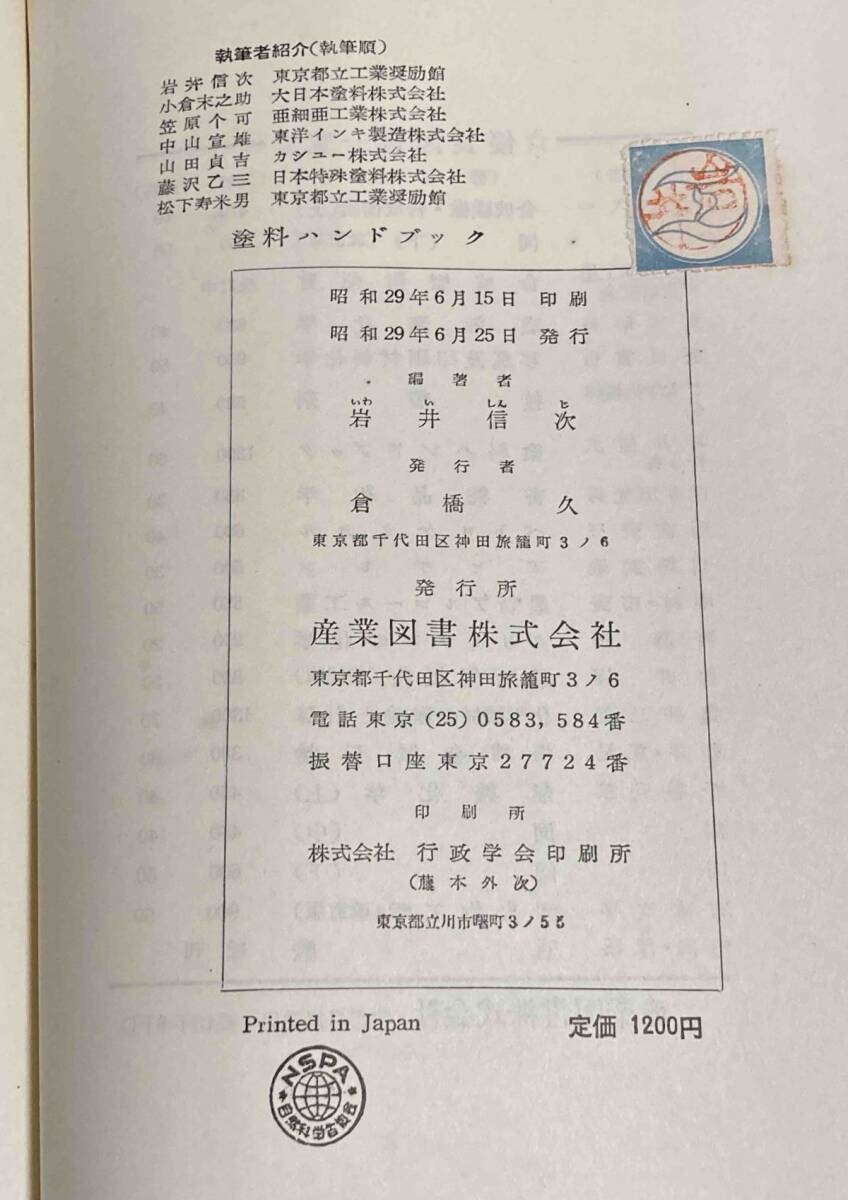 執筆者紹介(執筆順)
岩井信次 東京都立工業奨励館
小倉末之助 大日本塗料株式会社
笠原个可 亜細亜工業株式会社
中山宣雄 東洋インキ製造株式会社
山田貞吉 カシユー株式会社
藤沢乙三 日本特殊塗料株式会社
松下寿米男 東京都立工業奨励館
塗料ハンドブック
昭和29年6月15日 印刷
昭和29年6月25日 発行
編著者
いわ い しん じ
岩井信次
発行者
倉橋久
東京都千代田区神田旅籠町3ノ6
発行所
産業図書株式会社
東京都千代田区神田旅籠町3ノ6
電話東京(25)0583,584番
振替口座東京27724番
印刷所
株式会社 行政学会印刷所
(藤本外次)
東京都立川市曙町3ノ55
Printed in Japan
定価 1200円
NSPA
自然科学書協会